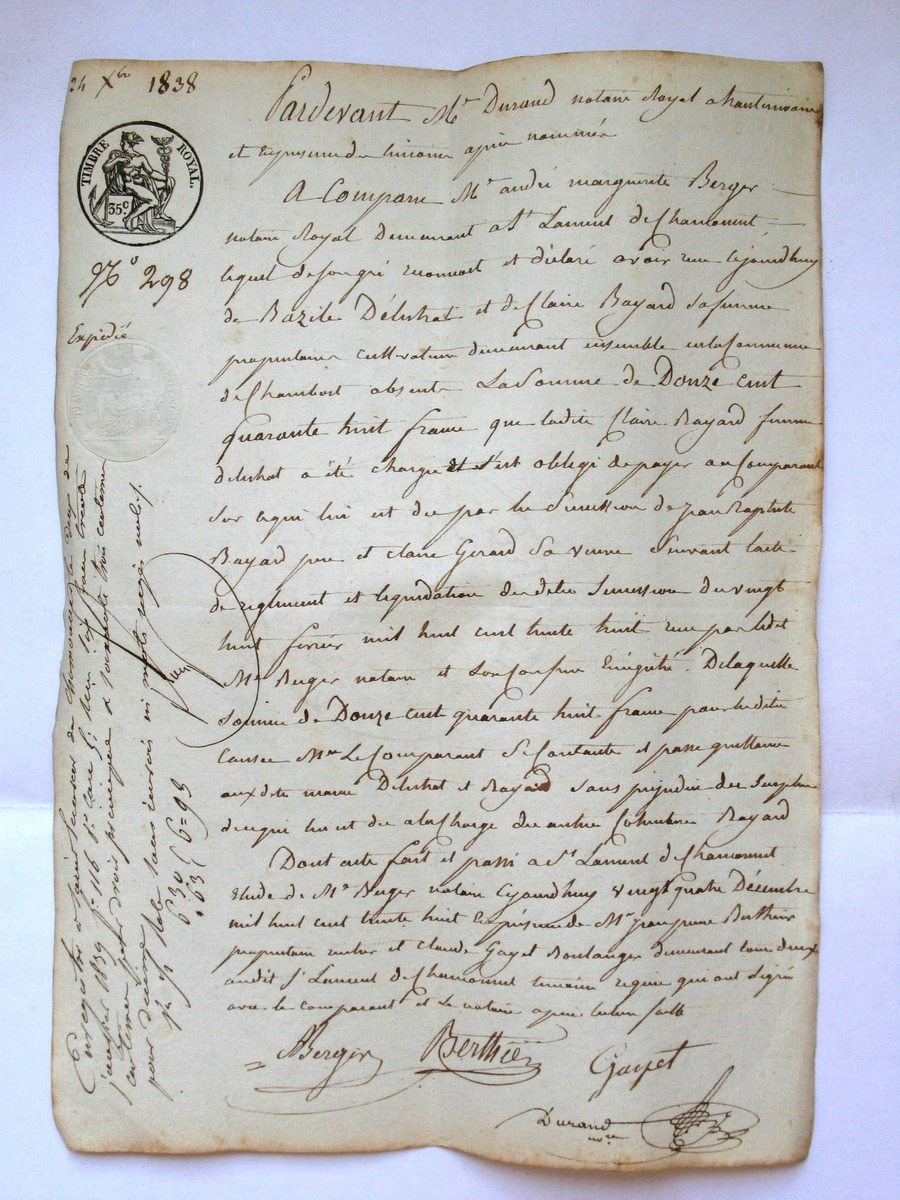 24 Xbre 1838
TIMBRE ROYAL.
35c
No 298
Expédié
Pardevant Me Durand notaire Royal a
et en présence de témoins après nommés
A Comparu Me andré marguerite Berger
notaire Royal demeurant a St Laurent de Chamousset,
lequel de son gré reconnait et déclaré avoir reçu cejourdhuy
de Bazile Délishat et de Claire Bayard sa femme
propriétaires cultivateurs demeurant ensemble en la Commune
de Chambost absents La Somme de Douze cent
quarante huit francs que ladite Claire Bayard femme
delishat a été chargée et s'est obligé de payer au Comparant
Sur cequi lui est du par la Succession de jean Baptiste
Bayard pere et claire Gerard Sa veuve Suivant lacte
de règlement et liquidation des dites Succession du vingt
huit février mil huit cent trente huit reçu par ledit
Me Berger notaire et Son Confrere Enrégistré. De laquelle
Somme de Douze cent quarante huit francs pour les dites
causes Me Le Comparant Se Contente et passe quittance
aux dits mariés Délishat et Bayard sans préjudice du Surplus
de cequi lui est du a la Charge des autres Cohéritiers Bayard
Dont acte fait et passé a St Laurent de Chamousset
Etude de Me Berger notaire Cejourdhuy vingt quatre Décembre
mil huit cent trente huit En présence de Mr jean Berthier
propriétaire rentier et Claude Gayet Boulanger demeurant tous deux
audit St Laurent de Chamousset témoins requis qui ont Signé
avec le comparant et le notaire après lecture faite
Berger Berthier Gayet
Durand nre
Enregistré à Saint Laurent de Chamousset le
janvier 1839 fo 116 Ro Case 5. Reçu six francs trente
centimes pour droit principal & soixante trois centimes
pour décime
6.30
.63
6=93